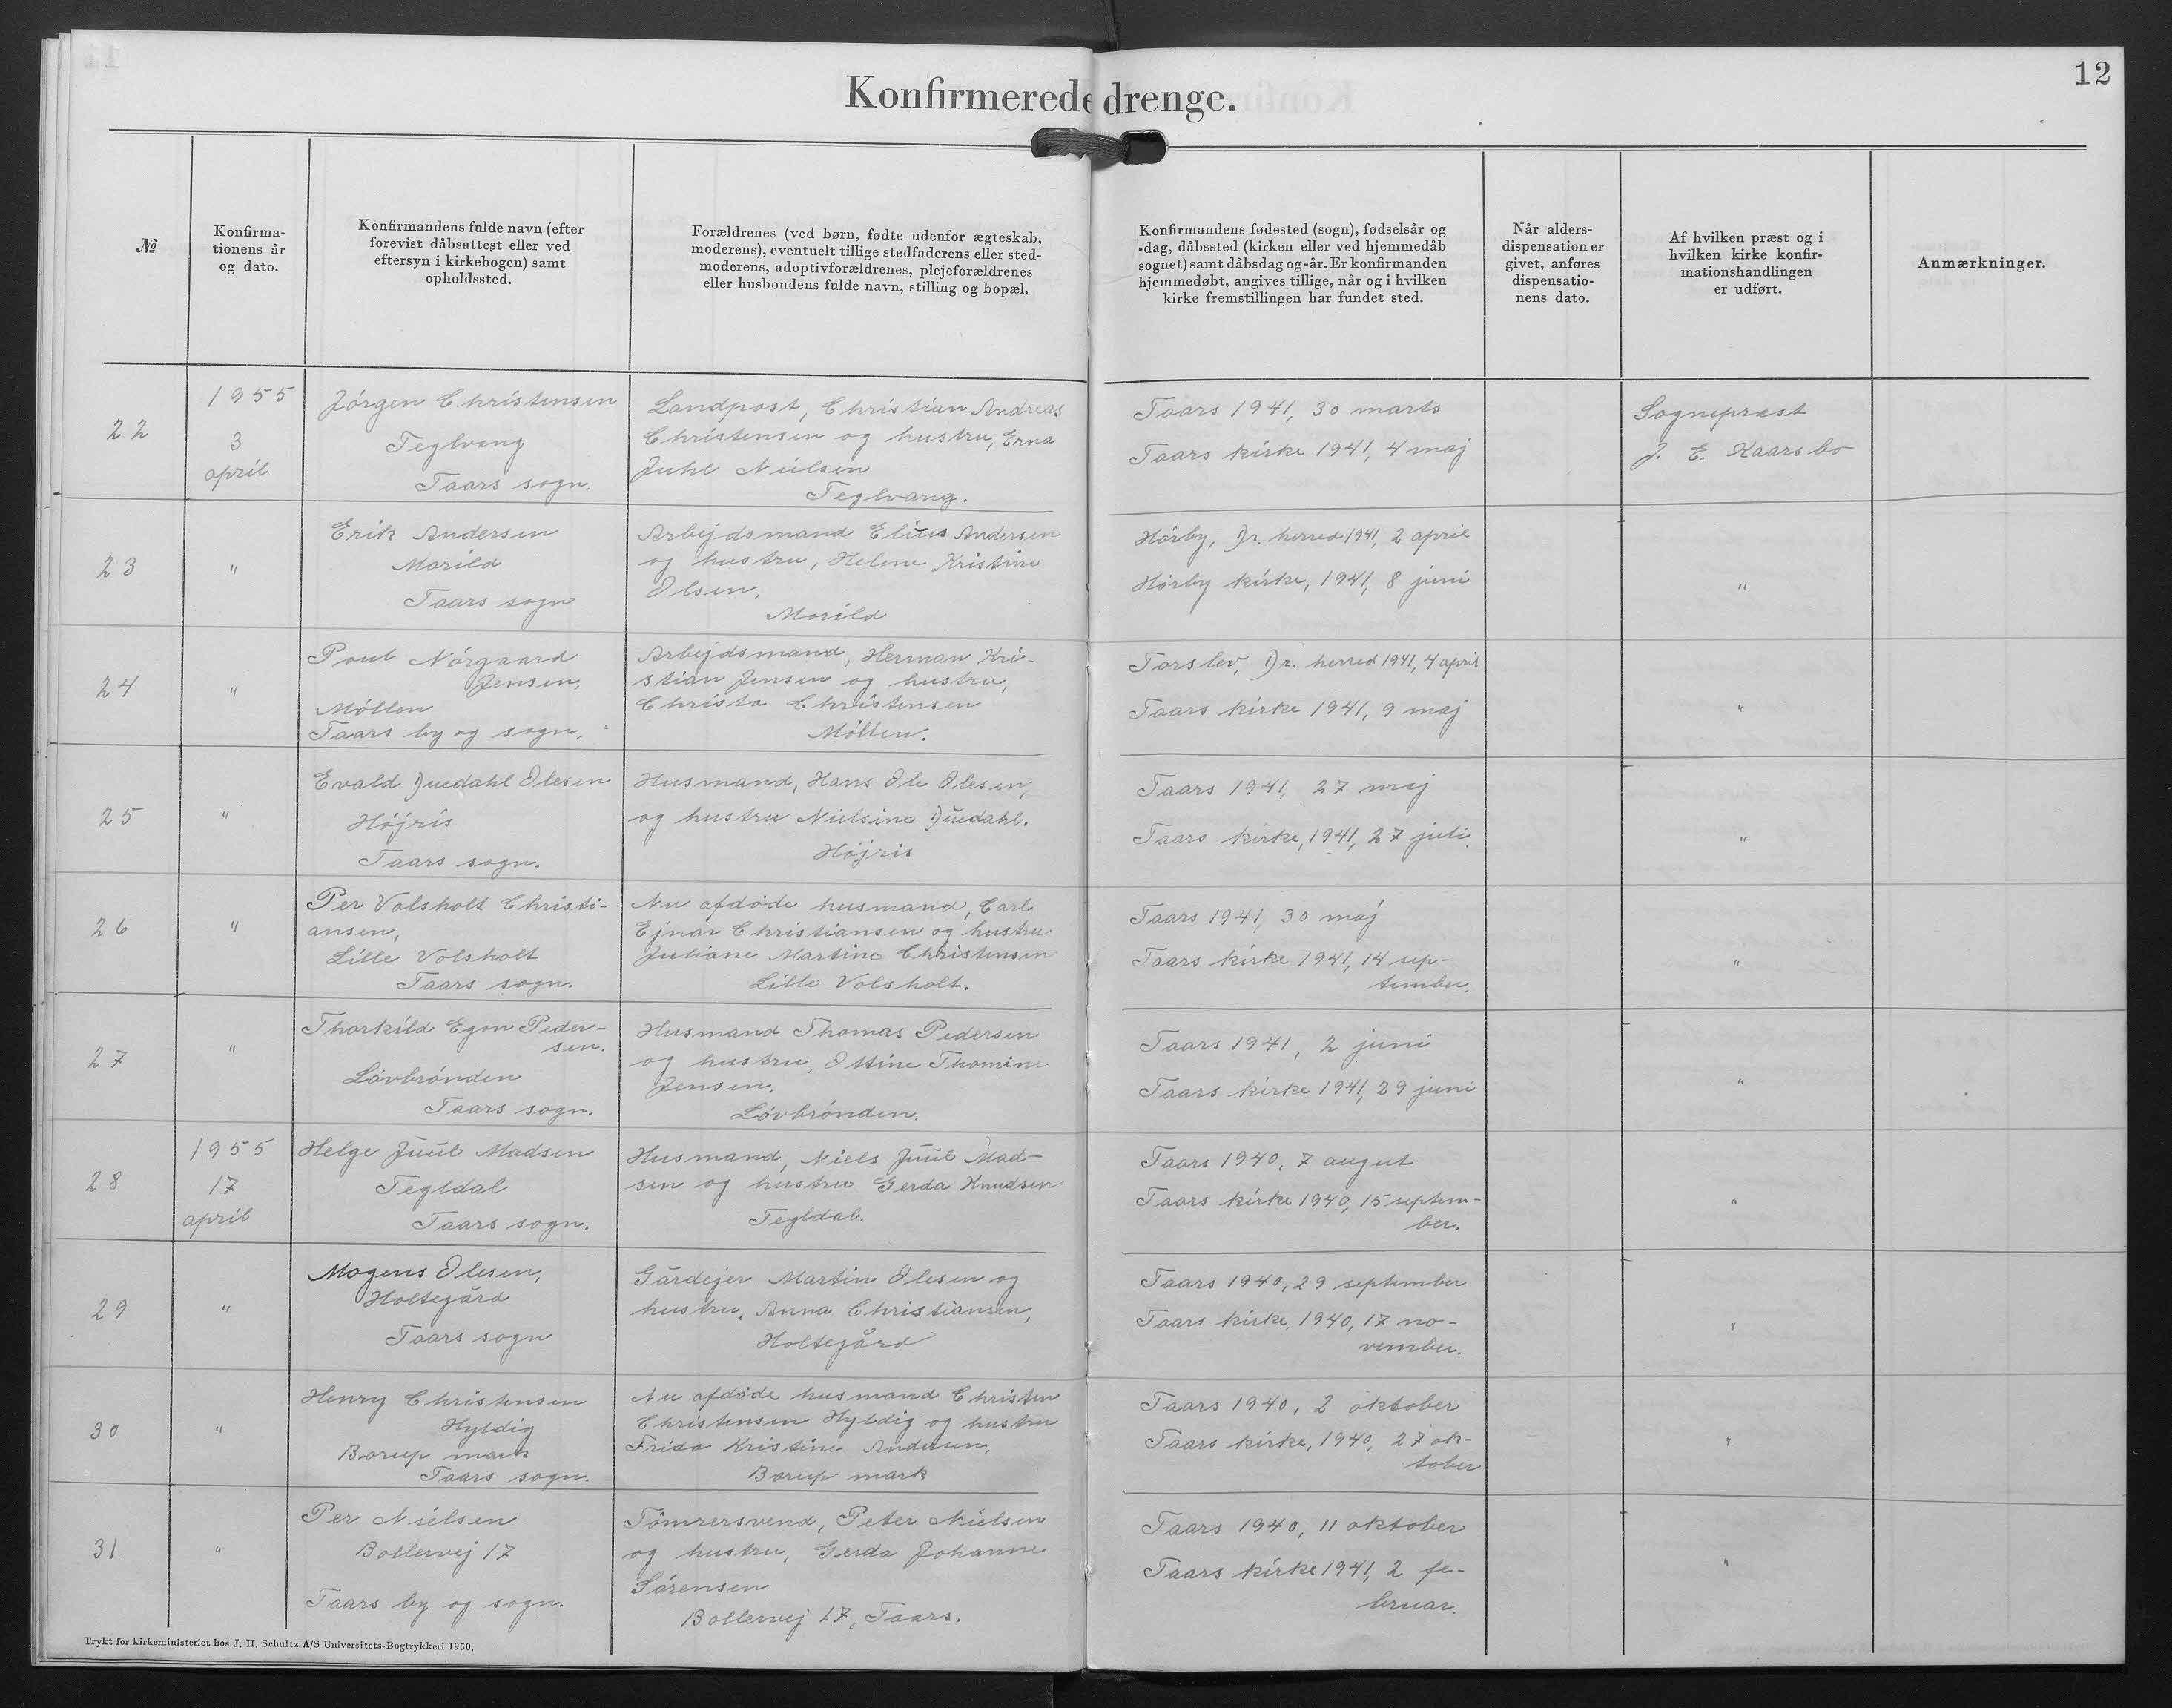 Konfirmerede drenge.
12
№
Konfirma-
tionens år
og dato.
Konfirmandens fulde navn (efter
forevist dåbsattest eller ved
eftersyn i kirkebogen) samt
opholdssted.
Forældrenes (ved børn, fødte udenfor ægteskab,
moderens), eventuelt tillige stedfaderens eller sted-
moderens, adoptivforældrenes, plejeforældrenes
eller husbondens fulde navn, stilling og bopæl.
Konfirmandens fødested (sogn), fødselsår og
-dag, dåbssted (kirken eller ved hjemmedåb
sognet) samt dåbsdag og -år. Er konfirmanden
hjemmedøbt, angives tillige, når og i hvilken
kirke fremstillingen har fundet sted.
Når alders-
dispensation er
givet, anføres
dispensatio-
nens dato.
Af hvilken præst og i
hvilken kirke konfir-
mationshandlingen
er udført.
Anmærkninger.
22
1955
3
april
Jörgen Christensen
Teglvang
Taars sogn.
Landpost, Christian Andreas
Christensen og hustru, Erna
Juhl Nielsen
Teglvang.
Taars 1941, 30 marts
Taars kirke 1941, 4 maj
Sognepræst
J. E. Kaarsbo
23
"
Erik Andersen
Morild
Taars sogn
Arbejdsmand Elius Andersen
og hustru, Helene Kristine
Olsen,
Morild
Hörby, Dr. herred 1941, 2 april
Hörby kirke, 1941, 8 juni
"
24
"
Poul Nörgaard
Jensen,
Möllen
Taars by og sogn.
Arbejdsmand, Herman Kri-
stian Jensen og hustru,
Christa Christensen
Möllen.
Torslev, Dr. herred 1941, 4 april
Taars kirke 1941, 9 maj
"
25
"
Evald Duedahl Olesen
Höjris
Taars sogn.
Husmand, Hans Ole Olesen,
og hustru Nielsine Duedahl.
Höjris
Taars 1941, 27 maj
Taars kirke, 1941, 27 juli.
"
26
"
Per Volsholt Christi-
ansen,
Lille Volsholt
Taars sogn.
Nu afdöde husmand, Carl
Ejnar Christiansen og hustru
Juliane Martine Christensen
Lille Volsholt.
Taars 1941, 30 maj
Taars kirke 1941, 14 sep-
tember.
"
27
"
Thorkild Egon Peder-
sen.
Lövbrönden
Taars sogn.
Husmand Thomas Pedersen
og hustru, Ottine Thomine
Jensen.
Lövbrönden.
Taars 1941, 2 juni
Taars kirke 1941, 29 juni
"
28
1955
17
april
Helge Juul Madsen
Tegldal
Taars sogn.
Husmand, Niels Juul Mad-
sen og hustru Gerda Knudsen
Tegldal.
Taars 1940, 7 augut
Taars kirke 1940, 15 septem-
ber.
"
29
"
Mogens Olesen,
Holtegård
Taars sogn
Gårdejer Martin Olesen og
hustru, Anna Christiansen,
Holtegård
Taars 1940, 29 september
Taars kirke, 1940, 17 no-
vember.
"
30
"
Henry Christensen
Hyldig
Borup mark
Taars sogn.
Nu afdöde husmand Christen
Christensen Hyldig og hustru
Frida Kristine Andersen,
Borup mark
Taars 1940, 2 oktober
Taars kirke, 1940, 27 ok-
tober
"
31
"
Per Nielsen
Bollervej 17
Taars by og sogn.
Tömrersvend, Peter Nielsen
og hustru, Gerda Johanne
Sörensen
Bollervej 17, Taars.
Taars 1940, 11 oktober
Taars kirke 1941, 2 fe-
bruar.
"
Trykt for kirkeministeriet hos J. H. Schultz A/S Universitets-Bogtrykkeri 1950.